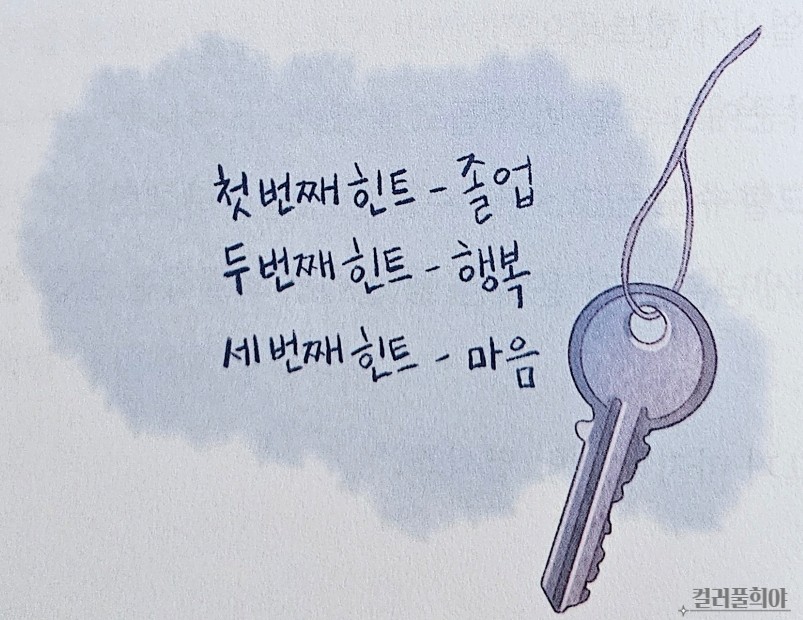 첫번째 힌트 - 졸업
두번째 힌트 - 행복
세번째 힌트 - 마음
컬러풀희야